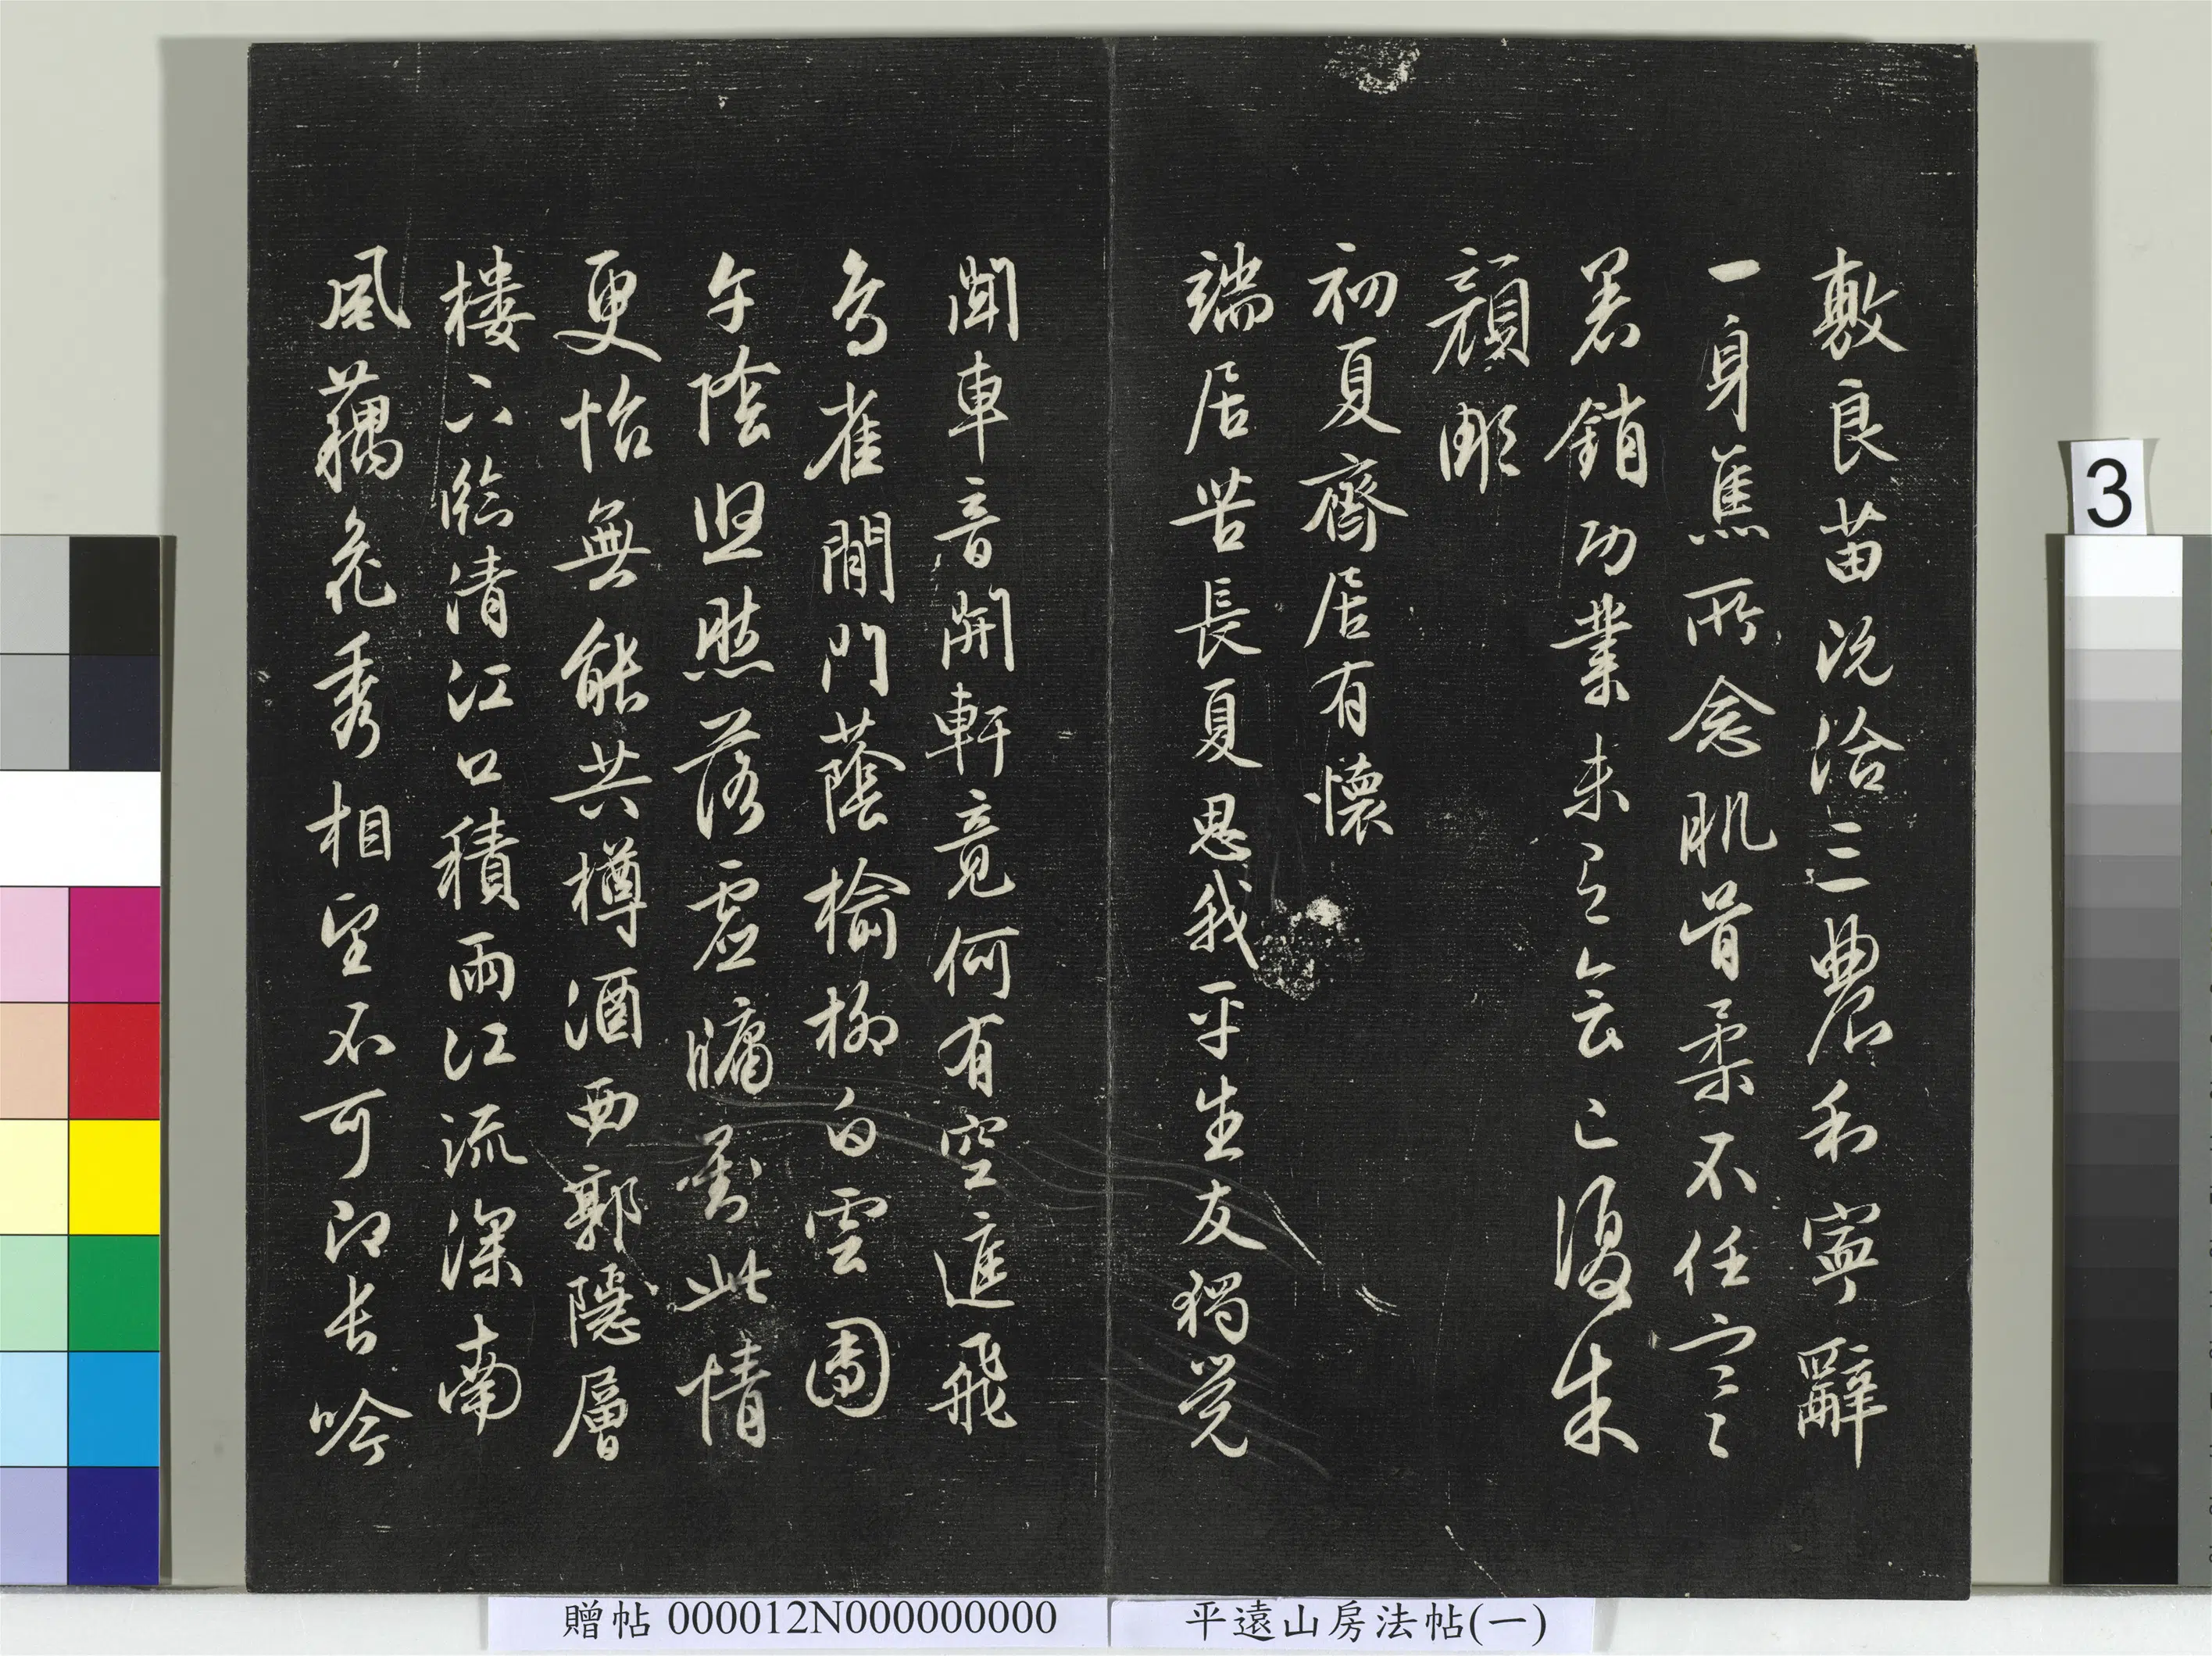 敷良苗況洽三農利寧辭
一身焦所念肌骨柔不任寒
暑銷功業未已復朱
顏彫
初夏齋居有懷
端居苦長夏思我平生友獨覺
聞車音開軒竟何有空庭飛
鳥雀閒門蔭榆柳白雲團
午陰照落虛牖對此情
更怡無能共樽酒西郭隱層
樓下臨清江口積雨江流深南
風藕花秀相望不可即長吟
3
贈帖 000012N000000000
平遠山房法帖(一)